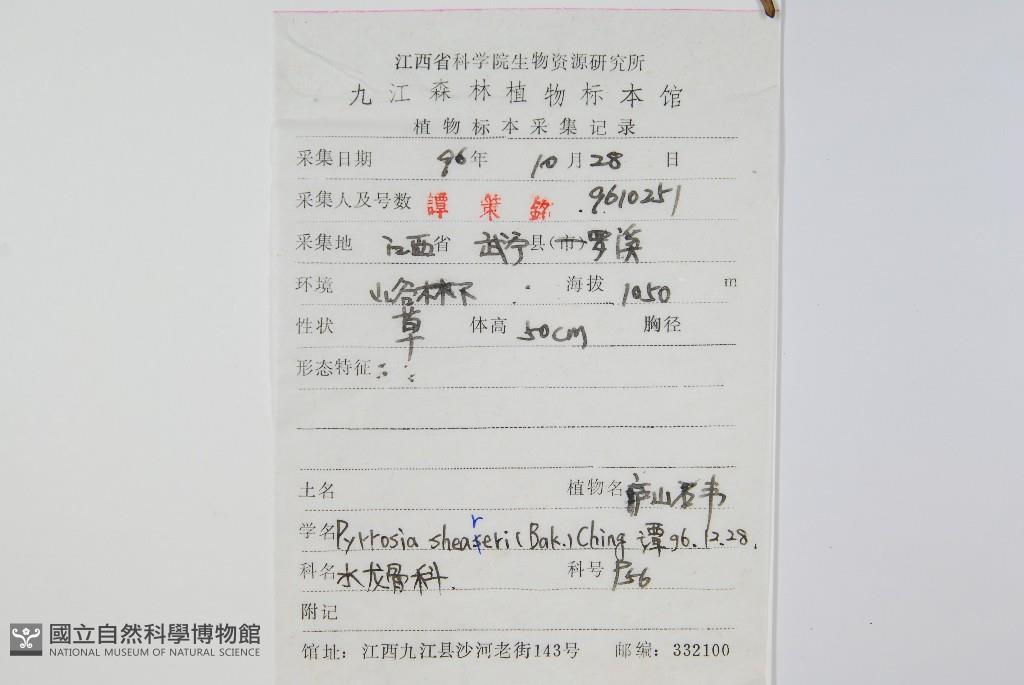 江西省科学院生物资源研究所
九江森林植物标本馆
植物标本采集记录
采集日期 96年 10月28日
采集人及号数 譚策銘 9610251
采集地 江西省 武宁县(市)罗溪
环境 山谷林下 海拔 1050 m
性状 草 体高 50cm 胸径
形态特征:
土名 植物名 庐山石韦
学名 Pyrrosia sheareri (Bak.) Ching 谭 96.12.28.
科名 水龙骨科. 科号 P56
附记
馆址: 江西九江县沙河老街143号 邮编: 332100
國立自然科學博物館
NATIONAL MUSEUM OF NATURAL SCIENCE